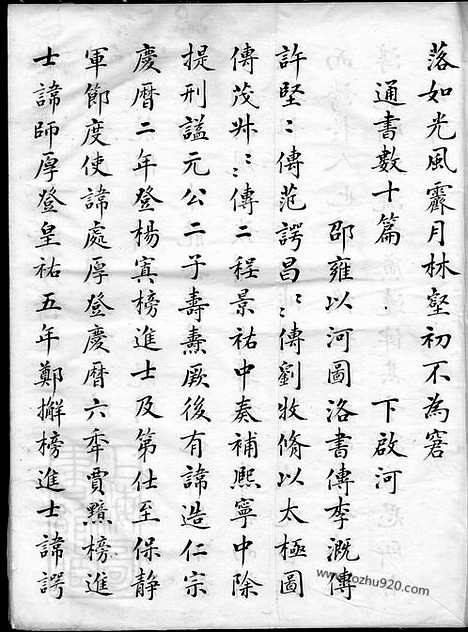 落如光風霽月林壑初不為窘
通書數十篇 下啟河
邵雍以河圖洛書傳李溉傳
許堅〻傳范諤昌〻傳劉牧脩以太極圖
傳茂叔〻傳二程景祐中奏補熙寧中除
提刑諡元公二子壽燾厥後有諱造仁宗
慶曆二年登楊寘榜進士及第仕至保靜
軍節度使諱處厚登慶曆六年賈黯榜進
士諱師厚登皇祐五年鄭獬榜進士諱諤
www.zozhu920.com